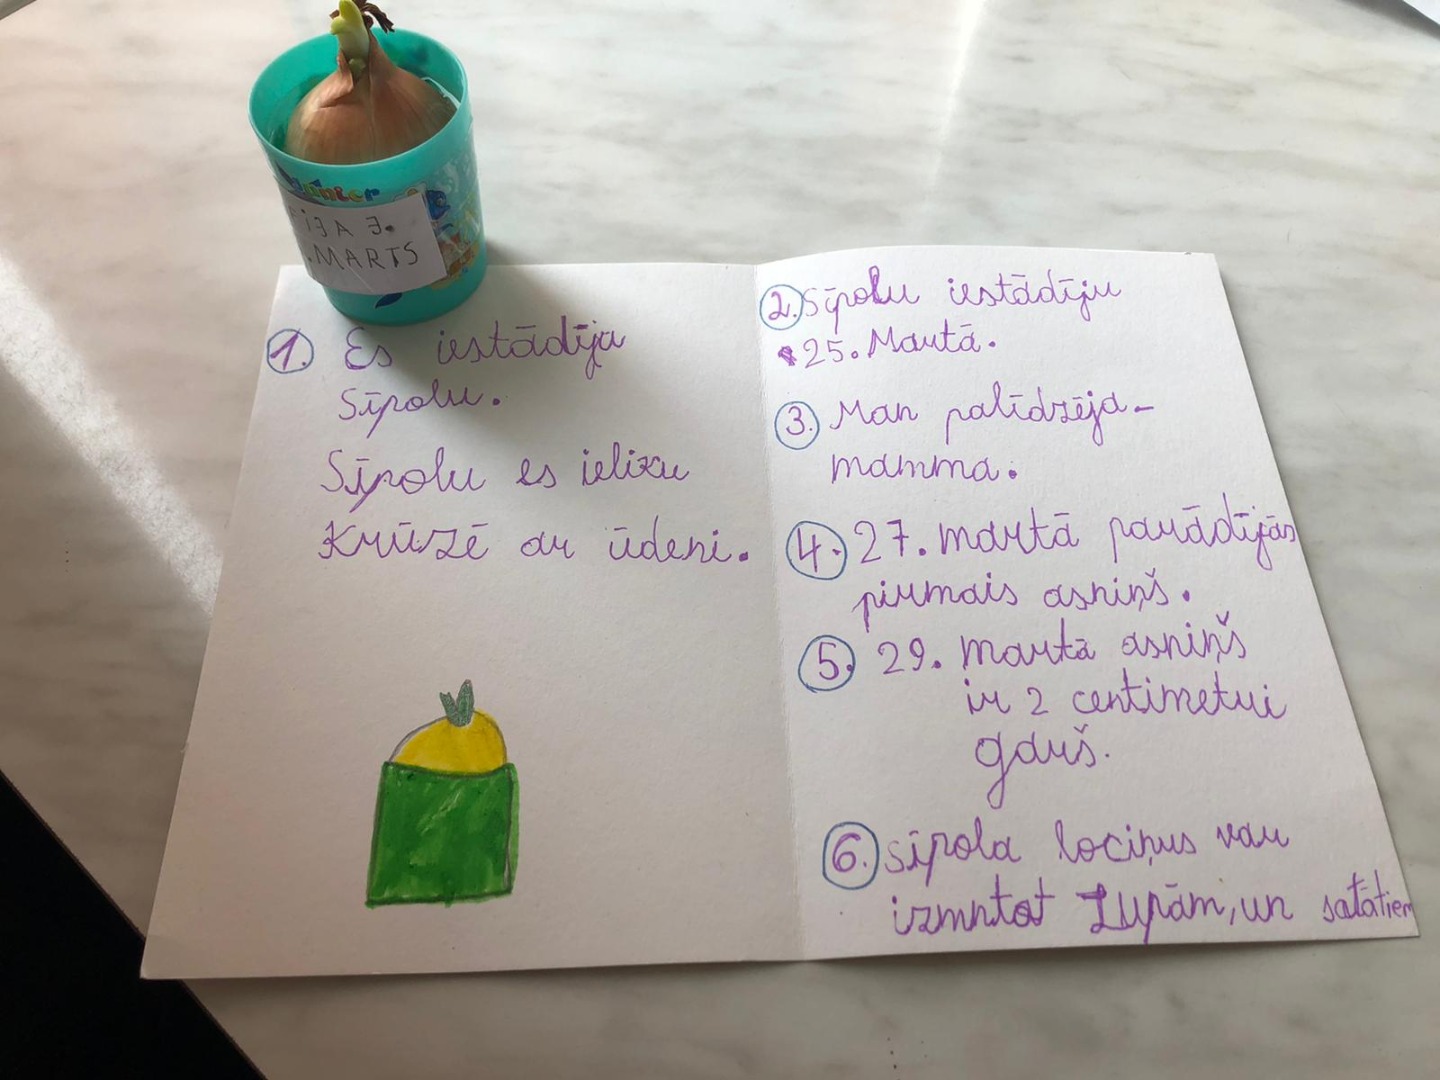 FIJA J.
.MARTS
1. Es iestādīja
Sīpolu.
Sīpolu es ieliku
Krūzē ar ūdeni.
2. Sīpolu iestādīju
25. Martā.
3. Man palīdzēja-
mamma.
4. 27. martā parādījās
pirmais asniņš.
5. 29. martā asniņš
ir 2 centimetri
garš.
6. sīpola lociņus var
izmntot Zupām, un satātiem